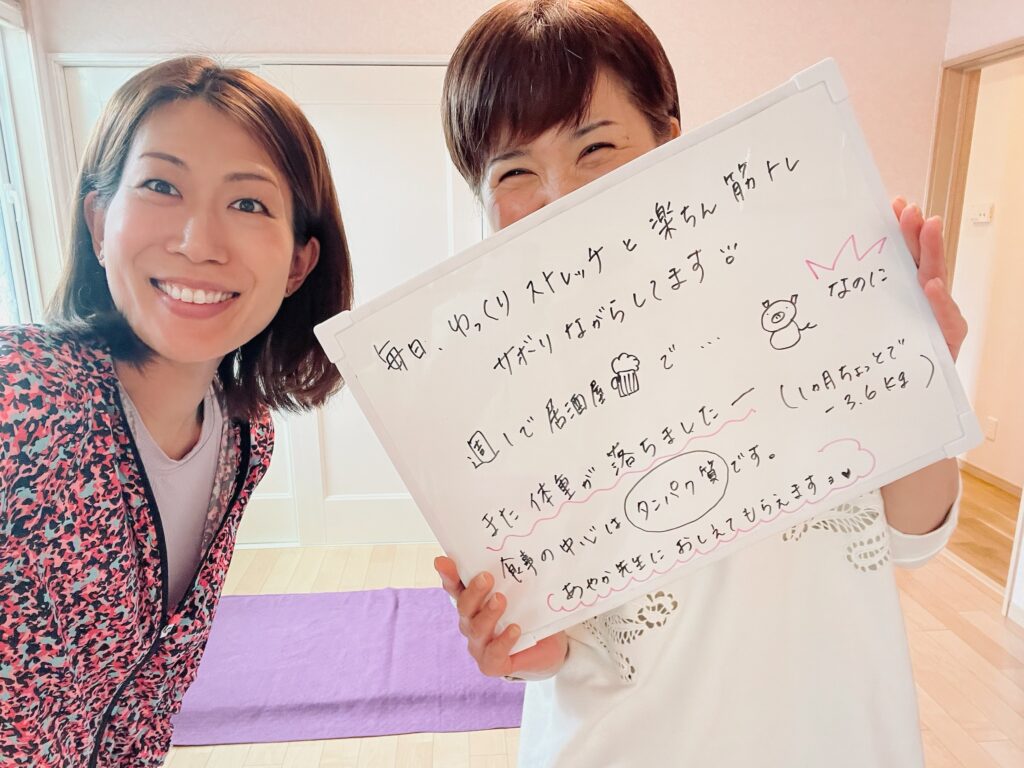 毎日、ゆっくりストレッチと楽ちん筋トレ
サボりながらしてます
週1で居酒屋で…なのに
また体重が落ちましたー(1ヵ月ちょっとで -3.6kg)
食事の中心はタンパク質です。
あやか先生におしえてもらえますョ♥